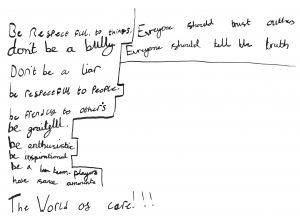 Be RespectFul to things.
don't be a bully
Don't be a liar
be respectFul to People.
be Friendly to other's
be gratefull.
be enthuristic
be inspirational
be a team players
have same amounts
The World of care!!!
Everyone should trust others
Everyone should tell the truth